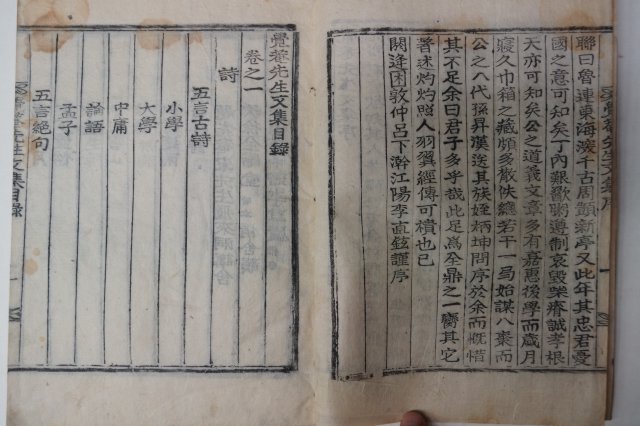 聯曰魯連東海淚千古周顗新亭又此年其忠君憂
國之意可知矣丁內艱歠粥邊制哀毀柴瘠誠孝根
天亦可知矣公之道義文章多有嘉惠後學而歲月
寢久巾箱之藏頗多散佚總若干一局始謀入棗而
公之八代孫昇漢送其族姪柄坤問序於余而慨惜
其不足余曰君子多乎哉此足爲全鼎之一臠其它
著述灼灼照人羽翼經傳可積也已
閼逢困敦仲呂下澣江陽李直鉉謹序
覺菴先生文集目錄
卷之一
詩
五言古詩
小學
大學
中庸
論語
孟子
五言絕句